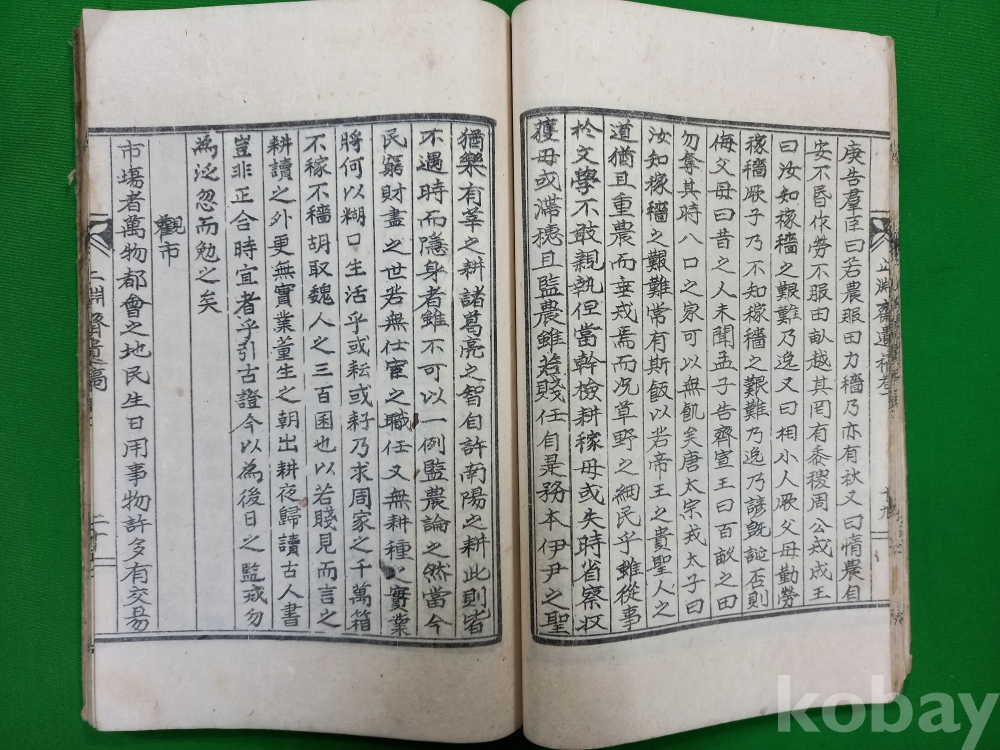 庚告羣臣曰若農服田力穡乃亦有秋又曰惰農自
安不昏作勞不服田畝越其罔有黍稷周公戒成王
曰汝知稼穡之艱難乃逸又曰相小人厥父母勤勞
稼穡厥子乃不知稼穡之艱難乃逸乃諺旣誕否則
侮父母曰昔之人未聞孟子告齊宣王曰百畝之田
勿奪其時八口之家可以無飢矣唐太宗戒太子曰
汝知稼穡之艱難常有斯飯以若帝王之貴聖人之
道猶且重農而垂戒焉而况草野之細民乎雖從事
於文學不敢親執但當幹檢耕稼毋或失時省察收
穫毋或滯穗且監農雖若賤任自是務本伊尹之聖
猶樂有莘之耕諸葛亮之智自許南陽之耕此則皆
不遇時而隱身者雖不可以一例監農論之然當今
民窮財盡之世若無仕宦之職任又無耕種之實業
將何以糊口生活乎或耘或耔乃求周家之千萬箱
不稼不穡胡取魏人之三百囷也以若賤見而言之
耕讀之外更無實業董生之朝出耕夜歸讀古人書
豈非正合時宜者乎引古證今以為後日之監戒勿
為泛忽而勉之矣
觀市
市場者萬物都會之地民生日用事物許多有交易
淵齋遺稿
二十
kobay